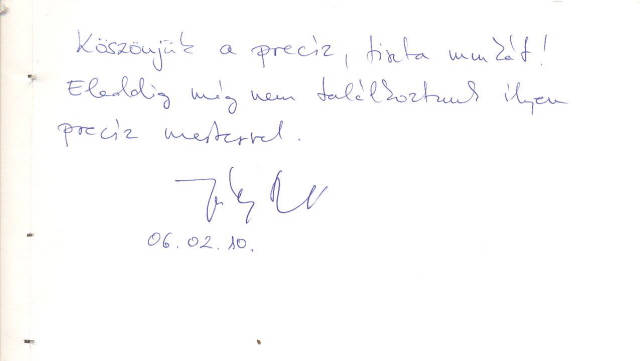 Köszönjük a precíz, tiszta munkát!
Eleddig még nem találkoztunk ilyen
precíz mesterrel.
06.02.10.